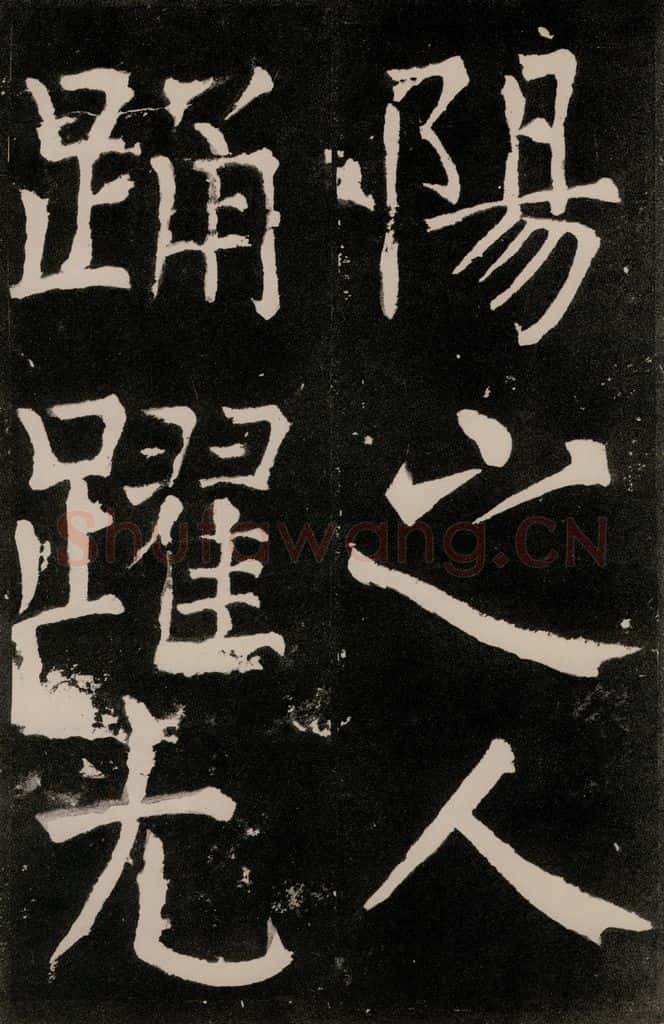 陽之人
踊躍
Shufawang.CN